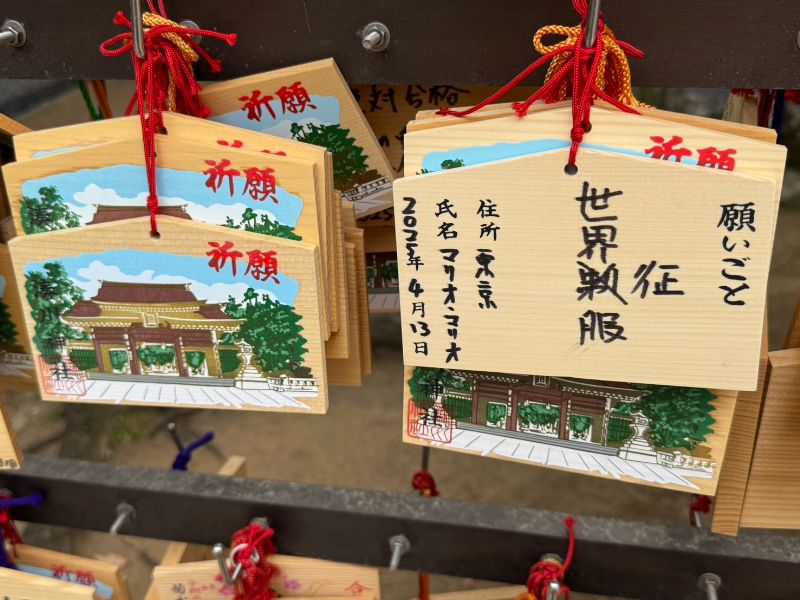 祈願
祈願
祈願
神社
対合格
祈願
願いごと
世界征服
住所 東京
氏名 マリオ・マリオ
2025年 4月13日
神社
祈願